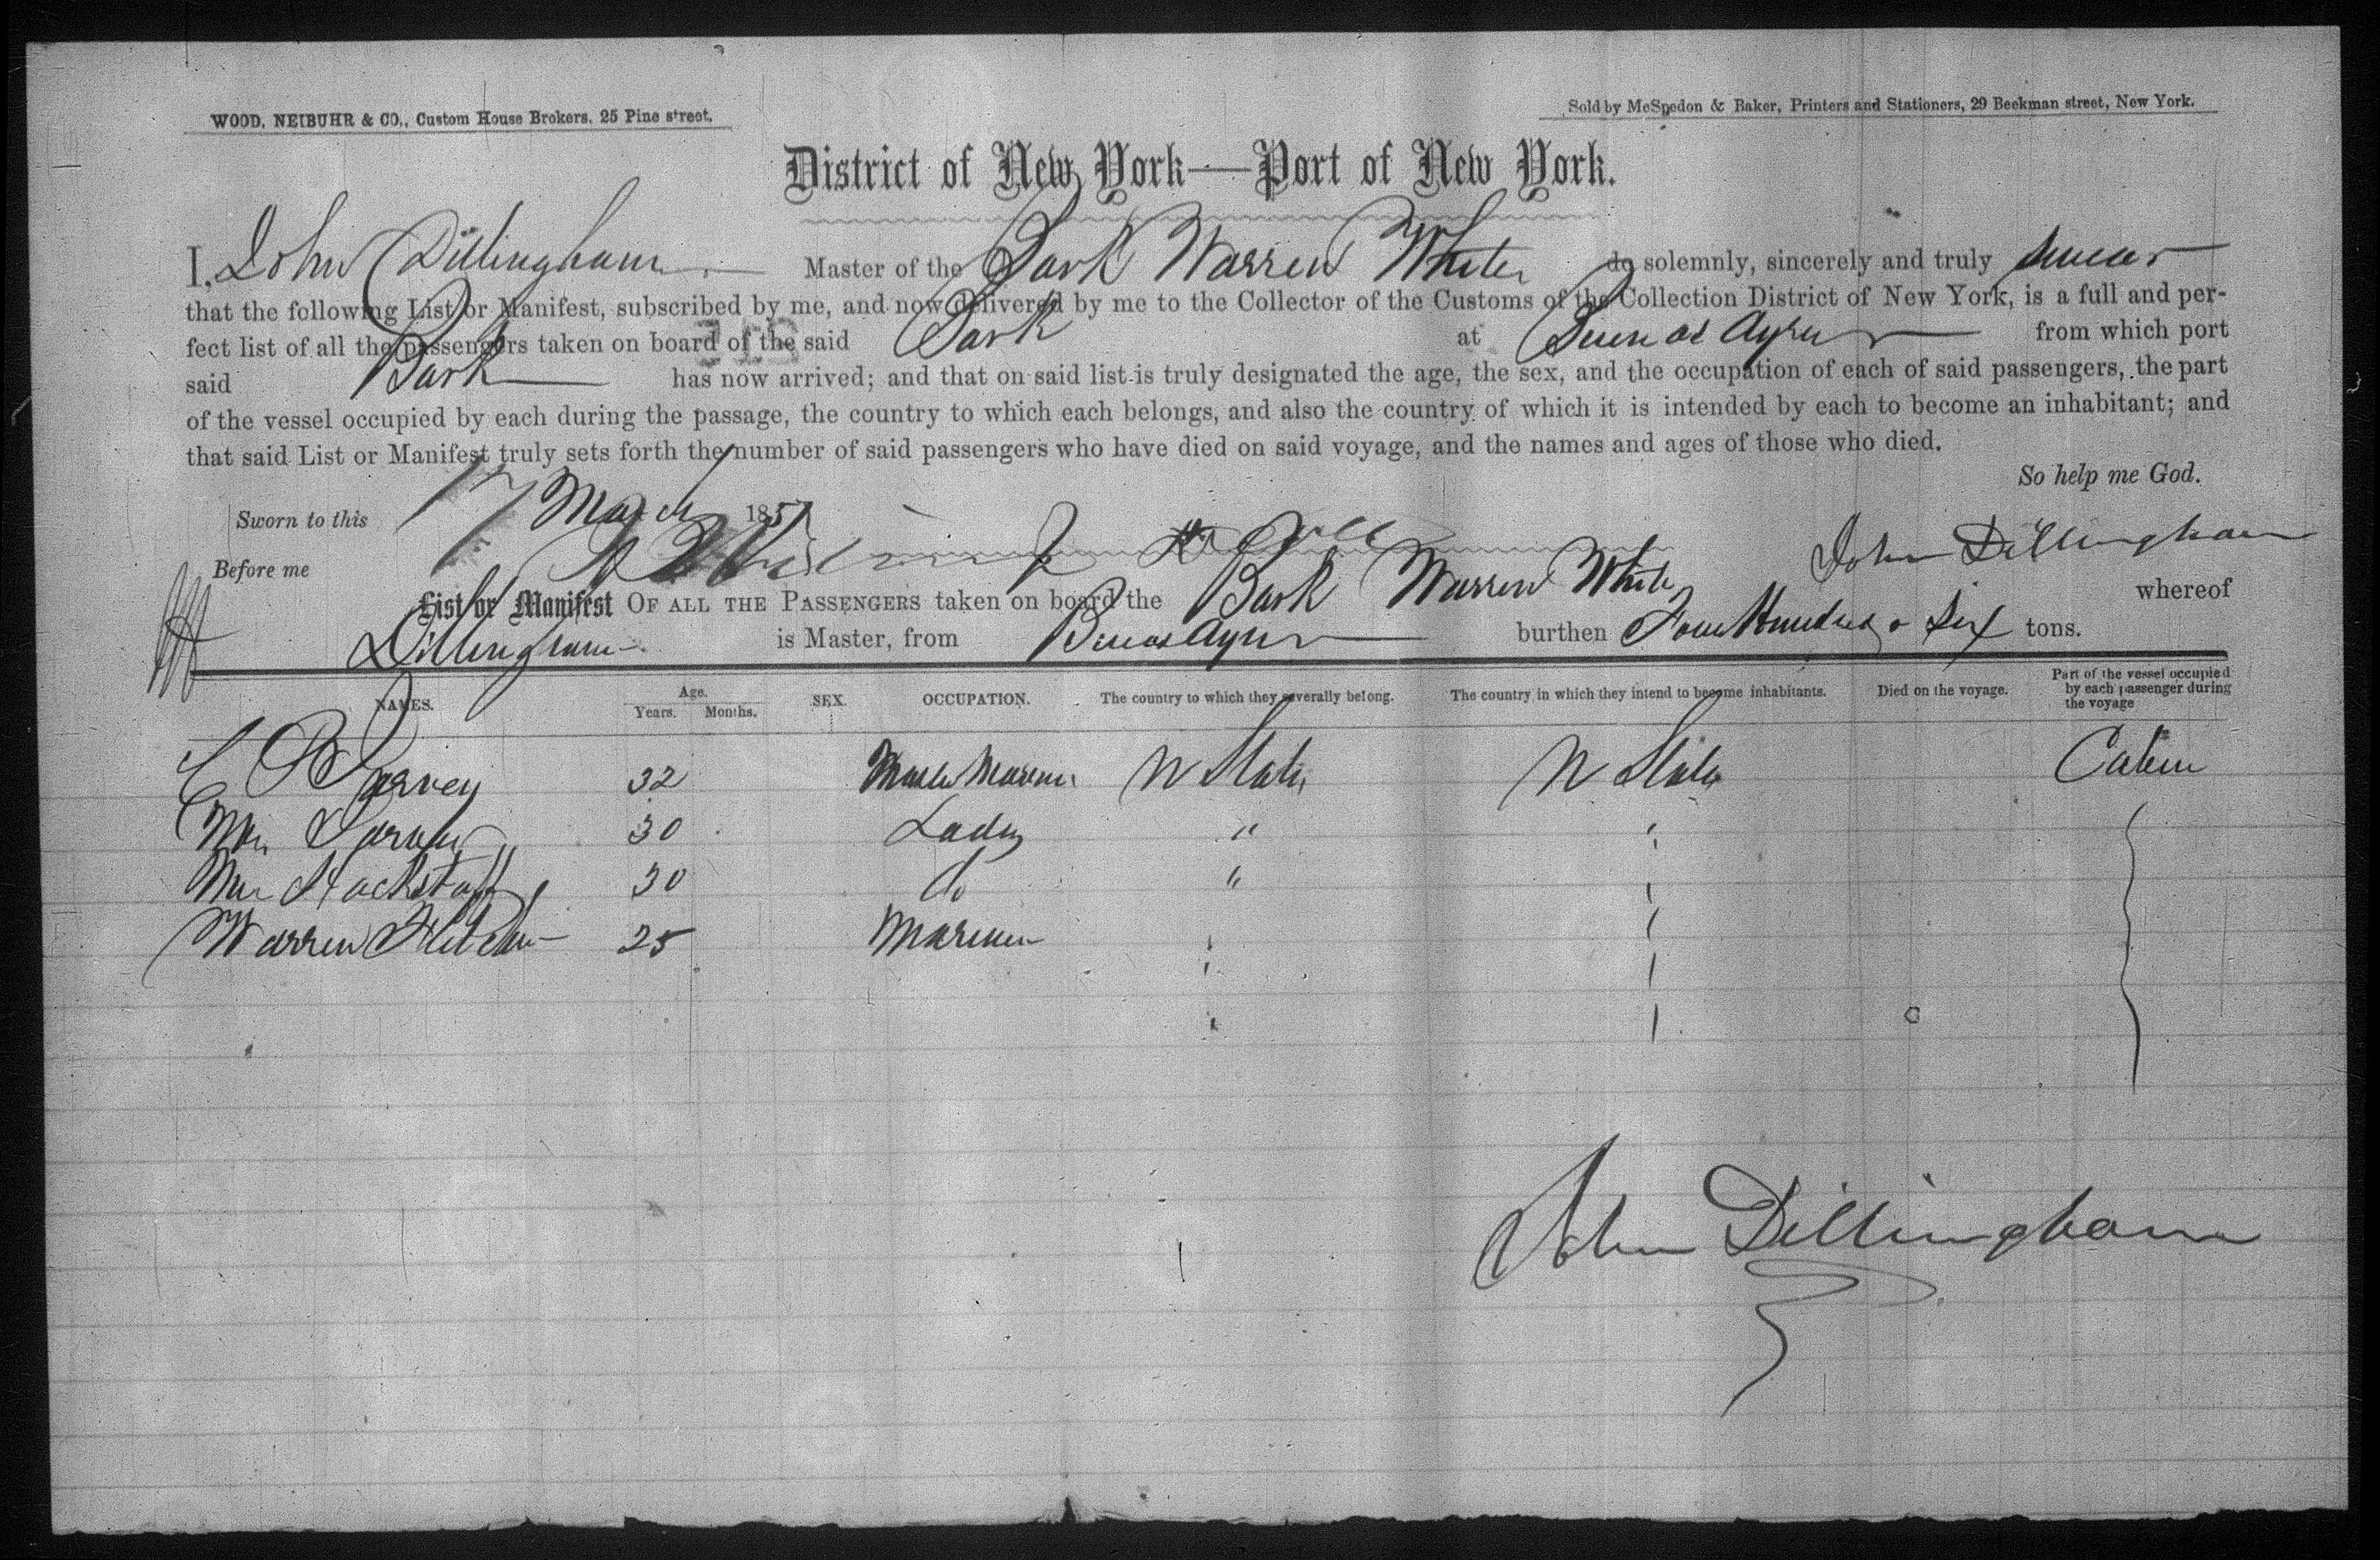 WOOD, NEIBUHR & CO., Custom House Brokers, 25 Pine street.
Sold by McSpedon & Baker, Printers and Stationers, 29 Beekman street, New York.
District of New York—Port of New York.
I, John Dillingham Master of the Bark Warren White do solemnly, sincerely and truly swear
that the following List or Manifest, subscribed by me, and now delivered by me to the Collector of the Customs of the Collection District of New York, is a full and per-
fect list of all the passengers taken on board of the said Bark at Buenos Ayres from which port
said Bark has now arrived; and that on said list is truly designated the age, the sex, and the occupation of each of said passengers, the part
of the vessel occupied by each during the passage, the country to which each belongs, and also the country of which it is intended by each to become an inhabitant; and
that said List or Manifest truly sets forth the number of said passengers who have died on said voyage, and the names and ages of those who died.
So help me God.
Sworn to this 17 March 185
Before me John Dillingham
List or Manifest OF ALL THE PASSENGERS taken on board the Bark Warren White whereof
Dillingham is Master, from Buenos Ayres burthen Four Hundred & Six tons.
NAMES. Age. Years. Months. SEX. OCCUPATION. The country to which they severally belong. The country in which they intend to become inhabitants. Died on the voyage. Part of the vessel occupied by each passenger during the voyage
32 U States U States Cabin
30 Lady "
30 do "
Warren 25 Mariner
John Dillingham